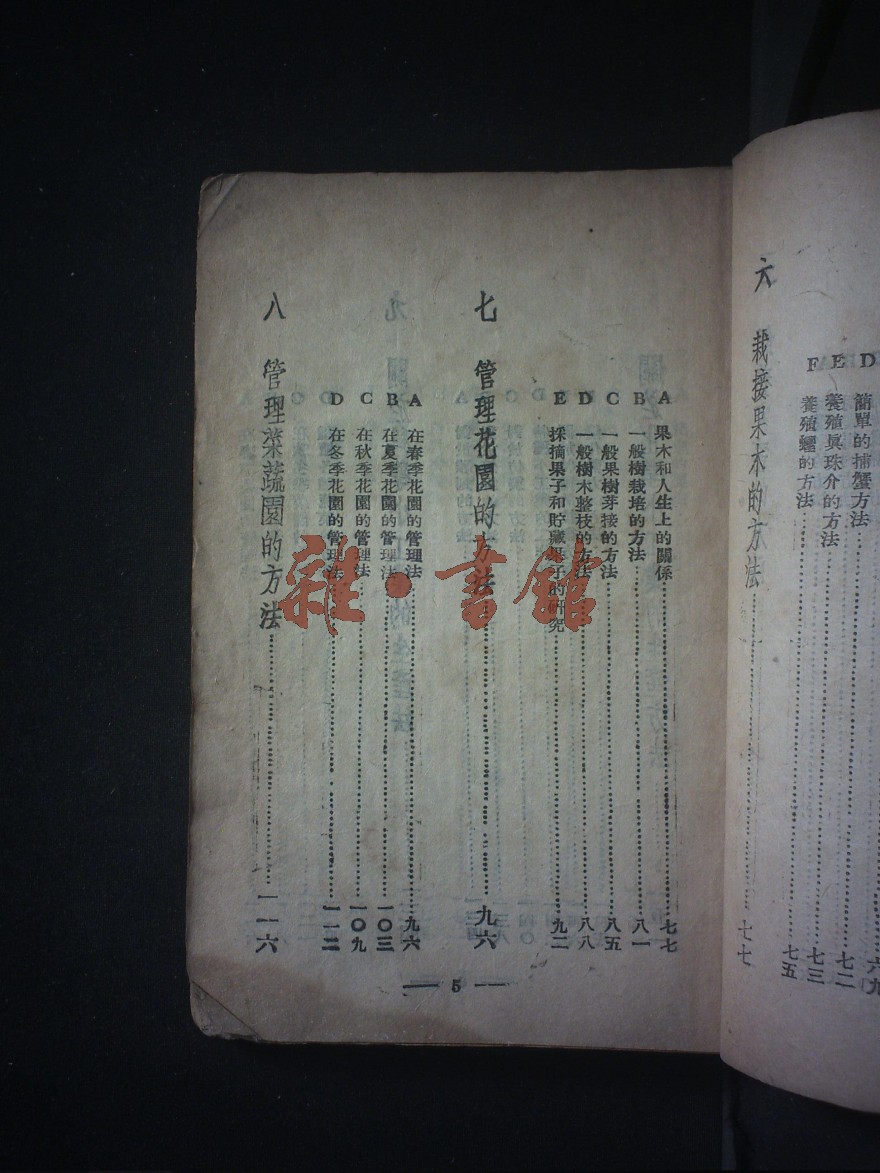 D 簡單的捕蟹方法……六九
E 養殖眞珠介的方法……七二
F 養殖蠣的方法……七三
七五
六 栽接果木的方法……七七
A 果木和人生上的關係……七七
B 一般樹栽培的方法……八一
C 一般果樹芽接的方法……八五
D 一般樹木整枝的方法……八八
E 採摘果子和貯藏果子的研究……九二
七 管理花園的方法……九六
A 在春季花園的管理法……九六
B 在夏季花園的管理法……一〇三
C 在秋季花園的管理法……一〇九
D 在冬季花園的管理法……一一二
八 管理菜蔬園的方法……一一六
— 5 —
雜·書館